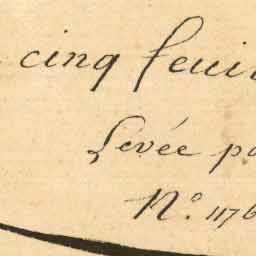 cinq feui
Levée pa
N.° 1176